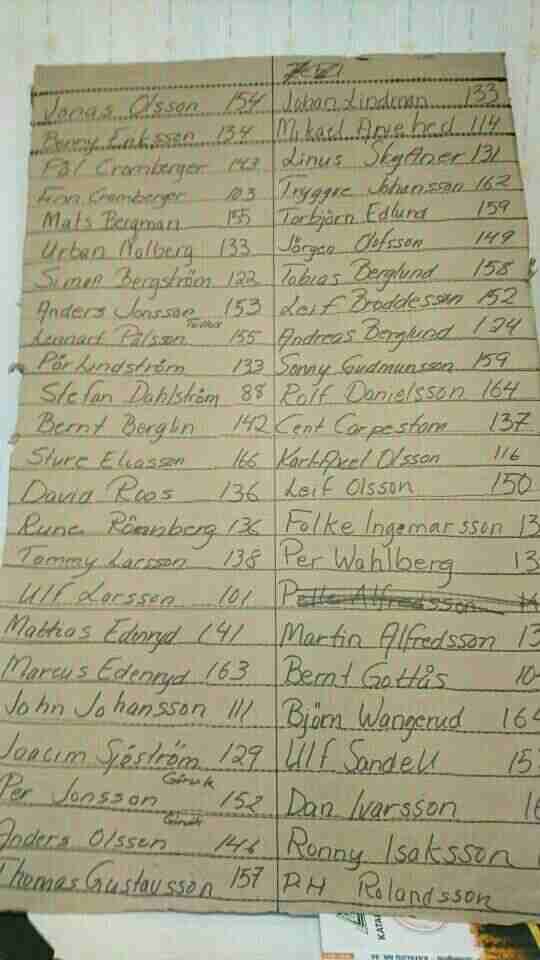 Jonas Olsson 154
Benny Eriksson 134
Pål Cromberger 143
Cromberger 103
Mats Bergman 155
Urban Malberg 133
Simon Bergström 122
Anders Jonsson 153
Lennart Pålsson 155
Pär Lindström 133
Stefan Dahlström 88
Bernt Berglin 142
Sture Eliasson 166
David Roos 136
Rune Rönnberg 136
Tommy Larsson 138
Ulf Larsson 101
Mathias Edenryd 141
Marcus Edenryd 163
John Johansson 111
Joacim Sjöström 129
Per Jonsson 152
Anders Olsson 146
Thomas Gustavsson 157
Johan Lindman 133
Mikael Arvehed 114
Linus 131
Tryggve Johansson 162
Torbjörn Edlund 159
Jörgen Olofsson 149
Tobias Berglund 158
Leif Broddesson 152
Andreas Berglund 124
Sonny Gudmunsson 159
Rolf Danielsson 164
Cent Carpestam 137
Karl-Axel Olsson 116
Leif Olsson 150
Folke Ingemarsson 13
Per Wahlberg 13
Pelle Alfredsson
Martin Alfredsson 13
Bernt Gottås 10
Björn Wangerud 164
Ulf Sandell 15
Dan Ivarsson 16
Ronny Isaksson
P.H Rolandsson